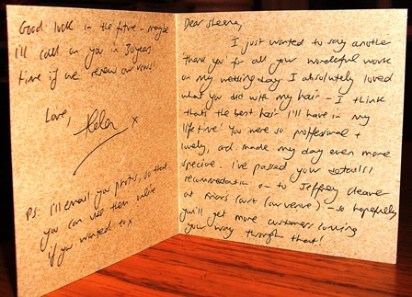 Dear Sheena,
I just wanted to say another
thank you for all your wonderful work
on my wedding day. I absolutely loved
what you did with my hair - I think
that's the best hair I'll have in my
lifetime! You were so proffessional +
lovely, and made my day even more
special. I've passed your details/
recommendation on to Jeffrey
at Friars Court (our venue) - so hopefully
you'll get more customers coming
your way through that!
Good luck in the future - maybe
I'll call on you in 20 years
time if we renew our vows!
Love,
Helen x
PS. I'll email you photos, so that
you can use them online
if you wanted to x